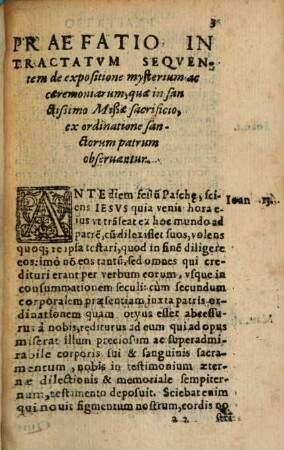 3
PRAEFATIO IN
TRACTATVM SEQVEN-
tem de expositione mysterium ac
cæremoniarum, quæ in san
ctissimo Missæ sacrificio,
ex ordinatione san-
ctorum patrum
obseruantur.
ANTE diem festũ Paschę, sci-
ens IESVS quia venit hora e
ius vt trãseat ex hoc mundo ad
patrẽ, cũ dilexisset suos, volens
quoq; re ipsa testari, quod in finẽ diligeret
eos: imò nõ eos tantũ, sed omnes qui cre-
dituri erant per verbum eorum, vsque in
consummationem seculi: cum secundum
corporalem præsentiam, iuxta patris or-
dinationem quam otyus esset abcessu-
rus à nobis, rediturus ad eum qui ad opus
miserat illum preciosum ac superadmi-
rabile corporis sui & sanguinis sacra-
mentum, nobis in testimonium æter-
næ dilectionis & memoriale sempiter-
num, testimento deposuit. Sciebat enim
qui nouit figmentum nostrum, cordis no
Ioan 13.
a 2
stri